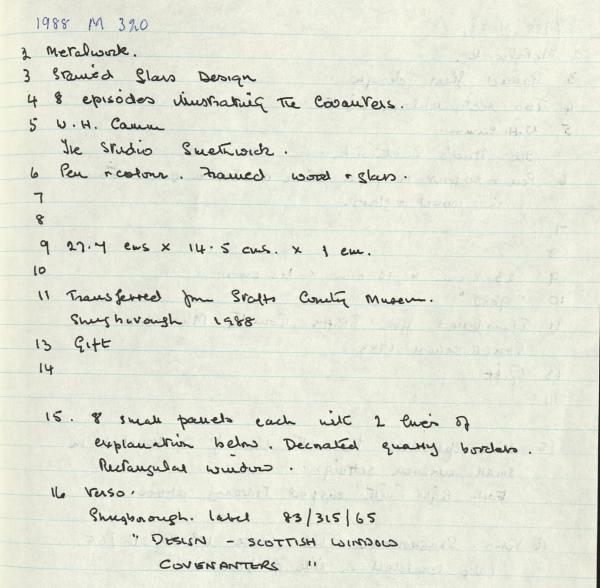 1988 M 320
2 Metalwork.
3 Stained Glass Design
4 8 episodes illustrating The Covanters.
5 W.H. Camm
The Studio Smethwick.
6 Pen + colour. Framed wood + glass.
7
8
9 27.7 cms x 14.5 cms. x 1 cm.
10
11 Transferred from Staffs County Museum.
Shugborough 1988
13 Gift
14
15. 8 small panels each with 2 lines of
explanation below. Decorated quarry borders.
Rectangular window.
16 Verso.
Shugborough label 83/315/65
" DESIGN - SCOTTISH WINDOW
COVENANTERS "